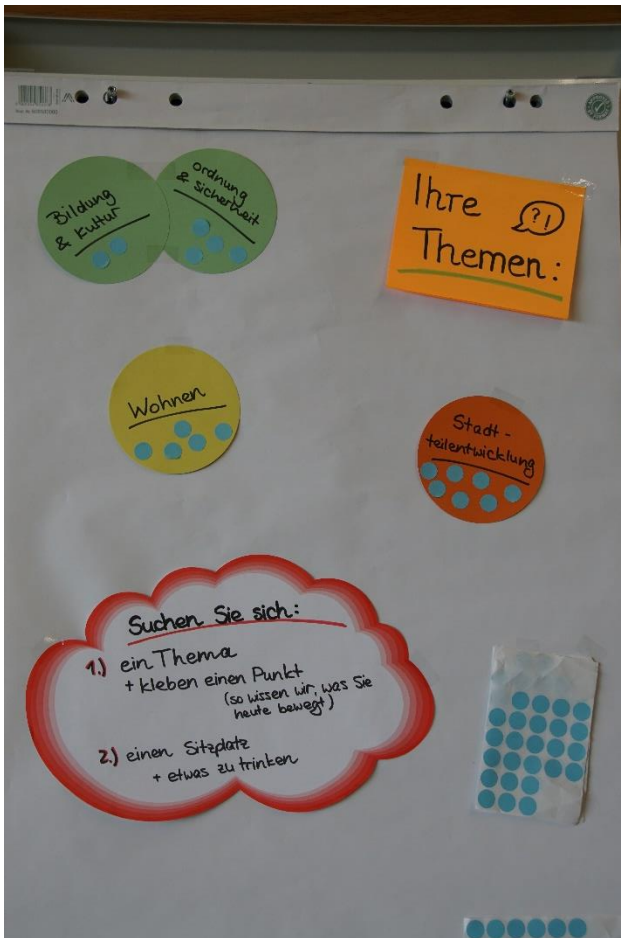 Bildung
& Kultur
Ordnung
& Sicherheit
Ihre ?!
Themen:
Wohnen
Stadt-
teilentwicklung
Suchen Sie sich:
1.) ein Thema
+ kleben einen Punkt
(so wissen wir, was Sie
heute bewegt)
2.) einen Sitzplatz
+ etwas zu trinken